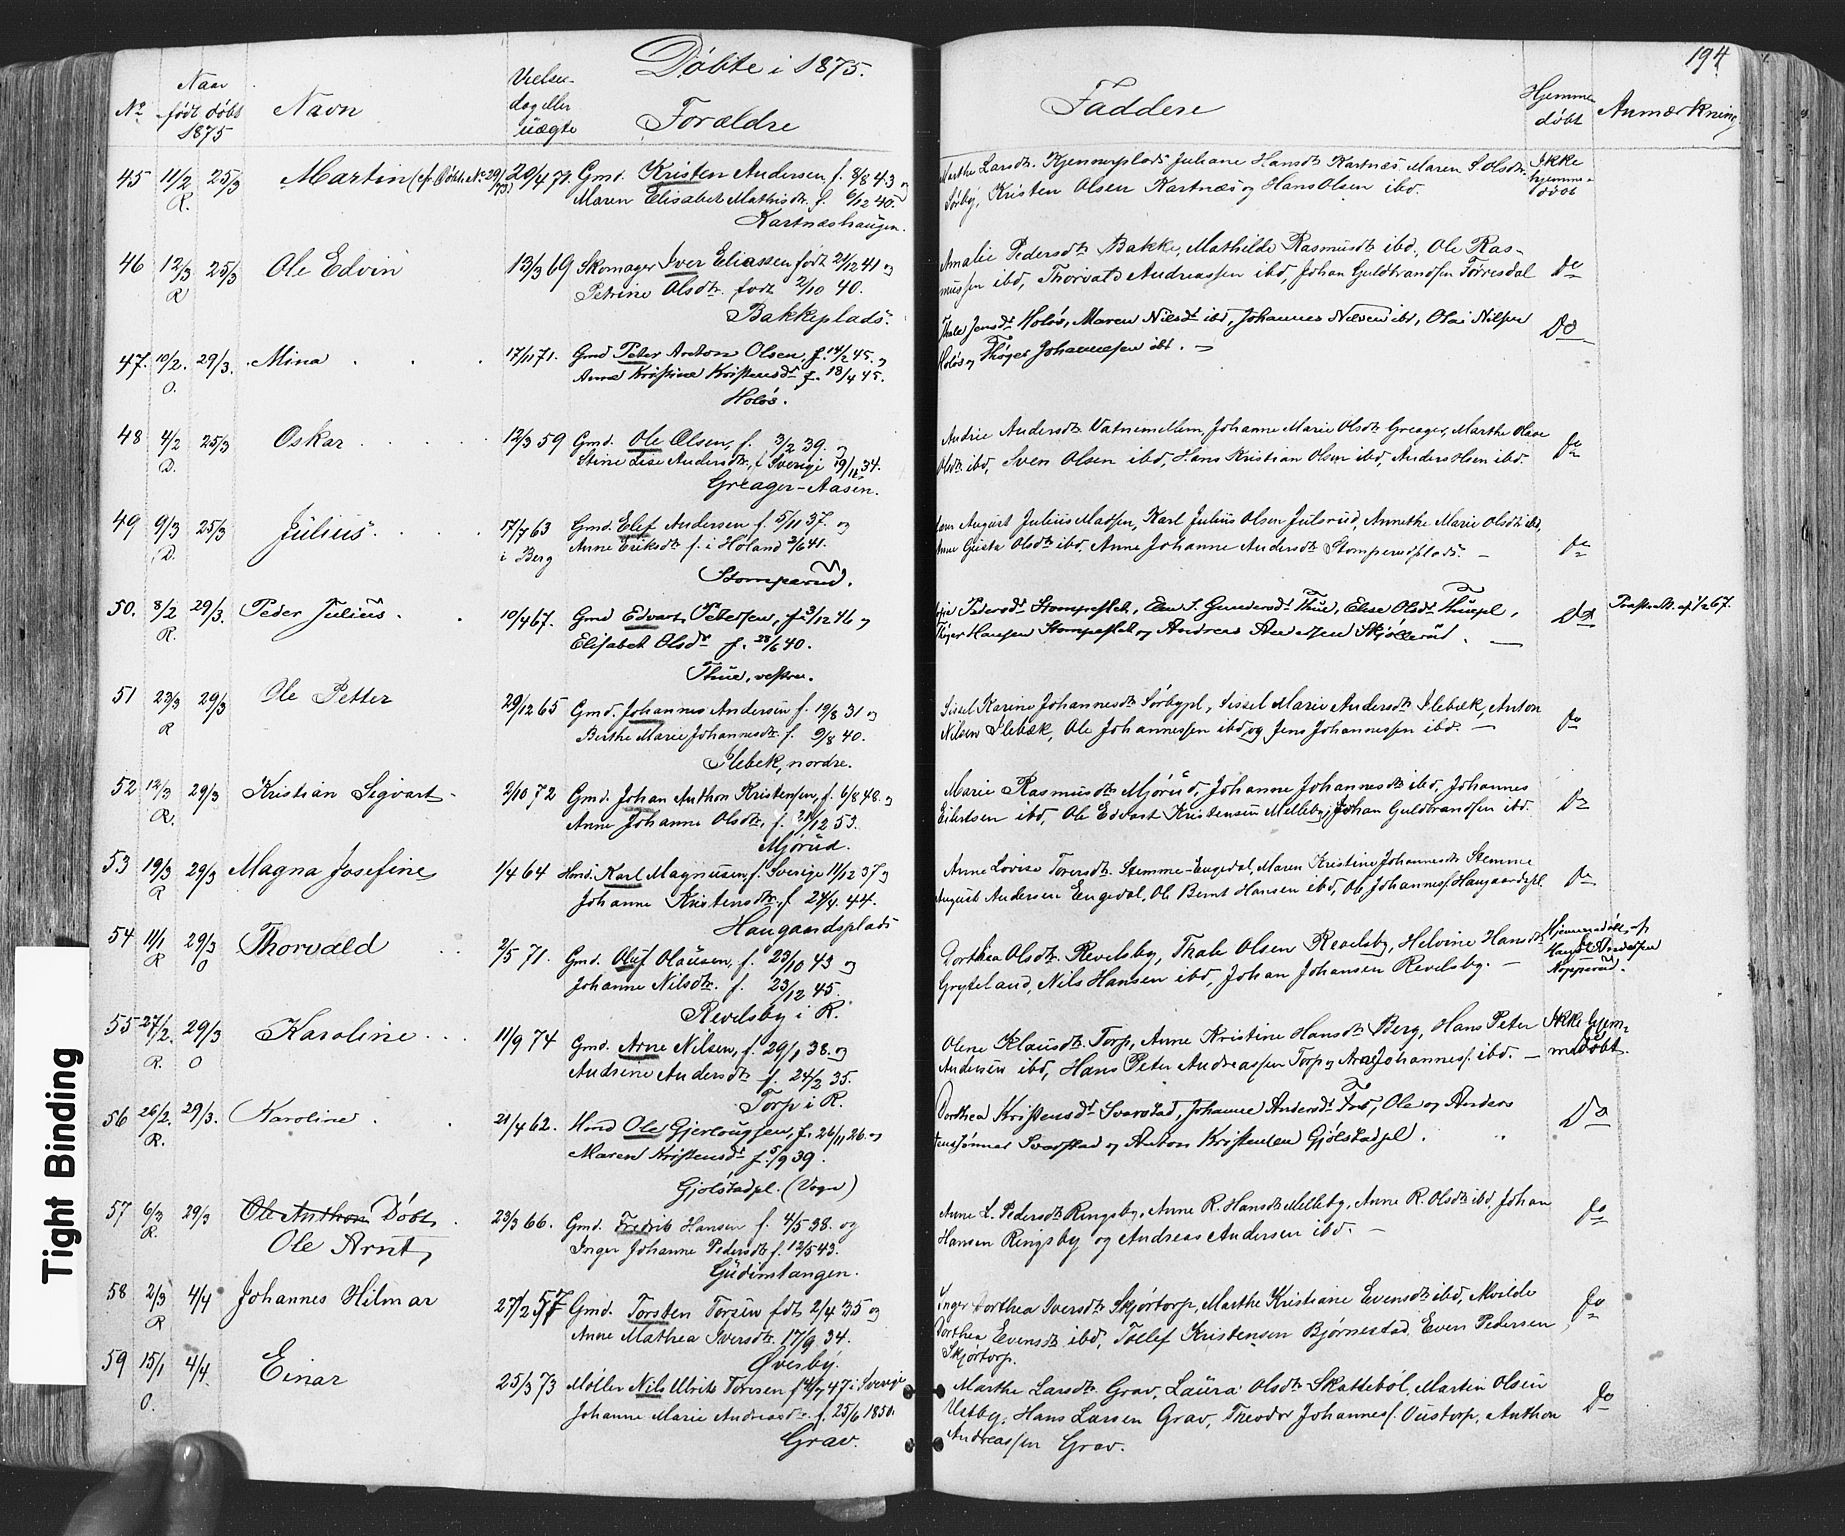 Döbte i 1875.
194
No
Naar
født døbt
1875
Navn
Vielses-
dag eller
uægte
Forældre
Faddere
Hjemme
døbt
Anmærkning
45 11/2 25/3 Martin (cfr. Döbte No 29/73) 29/4 71. Gmd. Kristen Andersen f. 8/8 43 og
R. Maren Elisabet Mathisdtr. f. 6/12 40.
Kartnæshaugen.
Marthe Larsdtr. Kjennerplads Juliane Hansdtr Kartnæs, Maren S. Olsdtr.
Sørby, Kristen Olsen Kartnæs og Hans Olsen ibd.
Ikke
hjemme-
døbt
46 12/3 25/3 Ole Edvin 13/3 69 Skomager Iver Eliassen født 21/12 41 og
R Petrine Olsdtr. født 2/10 40.
Bakkeplads.
Amalie Pedersdtr Bakke, Mathilde Rasmusdtr ibd., Ole Ras-
mussen ibd, Thorvald Andreassen ibd, Johan Guldbrandsen Torresdal Do
47. 10/2. 29/3. Mina 17/11 71. Gmd Peter Anton Olsen, f. 14/2 45. og
O. Anne Kristine Kristensdr f. 18/4 45.
Holøs.
Thale Jensdr Holøs, Maren Nilsdr ibd, Johannes Nilsen ibd, Olai Nilsen
Holøs og Thøger Johannessen ibd. Do
48 4/2 25/3 Oskar 12/3 59 Gmd. Ole Olsen, f. 3/2 39. og
R. Stine Lise Andersdtr., f. Sverige 19/12 34.
Greager-Aasen.
Andrie Andersdtr Vatnemellem, Johanne Marie Olsdtr Greager, Marthe Olave
Olsdtr ibd, Sven Olsen ibd, Hans Kristian Olsen ibd, Anders Olsen ibd. Do
49 9/3 25/3 Julius 17/7 63 Gmd. Elef Andersen f. 5/11 37. og
R. i Berg Anne Eriksdtr f. i Høland 2/6 41.
Stomperud.
August Julius Madsen, Karl Julius Olsen Julsrud, Annethe Marie Olsdtr ibd,
Anne Gusta Olsdtr ibd, Anne Johanne Andersdtr Stomperudplads. Do
50. 8/2 29/3. Peder Julius. 10/4 67. Gmd Edvart Petersen, f. 3/12 46 og
R. Elisabet Olsdr f. 28/6 40.
Thue, vestre.
Pedersdr Stompesletb, Elen S. Gundersdr Thue, Elise Olsdr Thuepl.,
Thøger Hansen Stompesletb og Andreas Andersen Skjøllerud. Do
51 23/3 29/3 Ole Petter 29/12 65 Gmd. Johannes Andersen f. 19/8 31 og
R Berthe Marie Johannesdtr f. 9/8 40.
Ilebek, nordre.
Sissel Karine Johannesdtr Sørbypl, Sissel Marie Andersdtr Ilebæk, Anton
Nilsen Ilebæk, Ole Johannessen ibd og Jens Johannessen ibd. Do
52 12/3 29/3 Kristian Sigvart 2/10 72 Gmd. Johan Anthon Kristensen, f. 6/8 48. og
R. Anne Johanne Olsdtr, f. 21/12 53.
Mjørud.
Marie Rasmusdtr Mjørud, Johanne Johannesdtr ibd, Johannes
Eilertsen ibd, Ole Edvart Kristensen Melleby, Johan Guldbrandsen ibd. Do
53 19/3 29/3 Magna Josefine 1/4 64 Hmd. Karl Magnusen, f. Sverige 11/12 37 og
R Johanne Kristensdtr. f 24/4. 44.
Haugaardsplads
Anne Lovise Toresdtr. Stemme-Engedal, Maren Kristine Johannesdtr Stemme
August Andersen Engedal, Ole Bernt Hansen ibd, Ole Johanness. Haugaardspl. Do
54 11/1 29/3 Thorvald 2/5 71. Gmd. Oluf Olausen, f. 23/10 43 og
R O Johanne Nilsdtr. f. 23/12 45.
Revelsby i R.
Dorthea Olsdtr. Revelsby, Thale Olsen Revelsby, Helvine Hansdtr
Gryteland, Nils Hansen ibd, Johan Johansen Revelsby.
Hjemmedøbt af
Andersen
Nopperud.
55 27/2. 29/3 Karoline 11/9 74 Gmd. Arne Nilsen, f. 29/1 38. og
R. O Andrine Andersdtr f. 24/2 35.
Torp i R.
Olene Klausdtr. Torp, Anne Kristine Hansdtr Berg, Hans Peter
Andersen ibd, Hans Peter Andreassen Torp og Arne Johanness. ibd.
Ikke hjem-
medøbt
56 26/2. 29/3. Karoline. 21/4 62. Hmd Ole Gjerlougsen, f. 26/11 26. og
R. Maren Kristensdr f. 5/9 39.
Gjølstadpl. (Vogn)
Dorthea Kristensdr Svarstad, Johanne Andersdr Frø, Ole og Anders
Svarstad og Anton Kristensen Gjølstadpl. Do
57 6/3 29/3 Ole Anthon Døbt 23/3 66. Gmd. Fredrik Hansen f. 4/5 38. og
R. Ole Arnt, Inger Johanne Pedersdtr f. 12/5 43.
Gudimtangen.
Anne L. Pedersdtr Ringsby, Anne R. Hansdtr Melleby, Anne R. Olsdtr ibd, Johan
Hansen Ringsby og Andreas Andersen ibd. Do
58 2/3 4/4 Johannes Hilmar 27/2 57 Gmd. Torsten Torsen født 2/4 35 og
R Anne Mathea Iversdtr. 17/9 34.
Øvesby.
Inger Dorthea Iversdtr Skjørtorp, Marthe Kristiane Evensdtr ibd,
Dorthea Evensdtr ibd, Tollef Kristensen Bjørnestad, Even Pedersen
Skjørtorp. Do
59 15/1 4/4. Einar 25/3 73 Møller Nils Ulrik Toresen f 4/7 47 i Sverige
O. Johanne Marie Andreasdtr. f. 25/6 1850.
Grav.
Marthe Larsdtr. Grav, Laura Olsdtr Skattebøl, Martin Olsen
Ustby, Hans Larsen Grav, Theodor Johanness. Oustorp, Anthon
Andreassen Grav. Do
Tight Binding